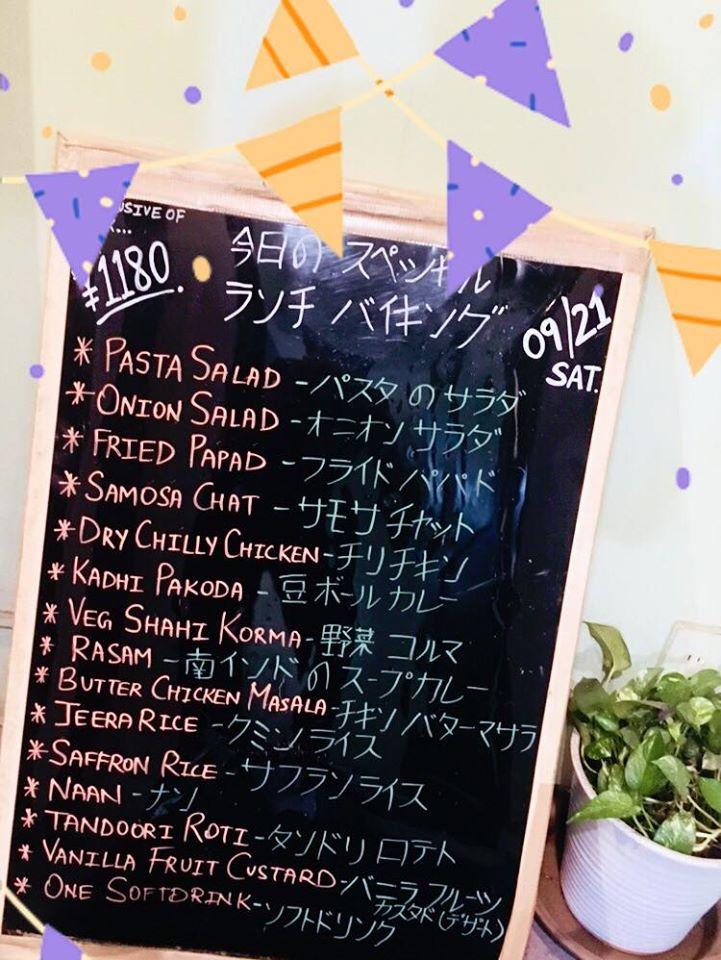 USIVE OF
¥1180.
今日の スペッキル
ランチ バイキング
09/21
SAT.
* PASTA SALAD - パスタ の サラダ
* ONION SALAD - オニオン サラダ
* FRIED PAPAD - フライド パパド
* SAMOSA CHAT - サモサ チャット
* DRY CHILLY CHICKEN - チリ チキン
* KADHI PAKODA - 豆 ボール カレー
* VEG SHAHI KORMA - 野菜 コルマ
* RASAM - 南インドの スープカレー
* BUTTER CHICKEN MASALA - チキン バターマサラ
* JEERA RICE - クミン ライス
* SAFFRON RICE - サフランライス
* NAAN - ナン
* TANDOORI ROTI - タンドリ ロテト
* VANILLA FRUIT CUSTARD - バニラ フルーツ
カスタド (デザート)
* ONE SOFTDRINK - ソフトドリンク